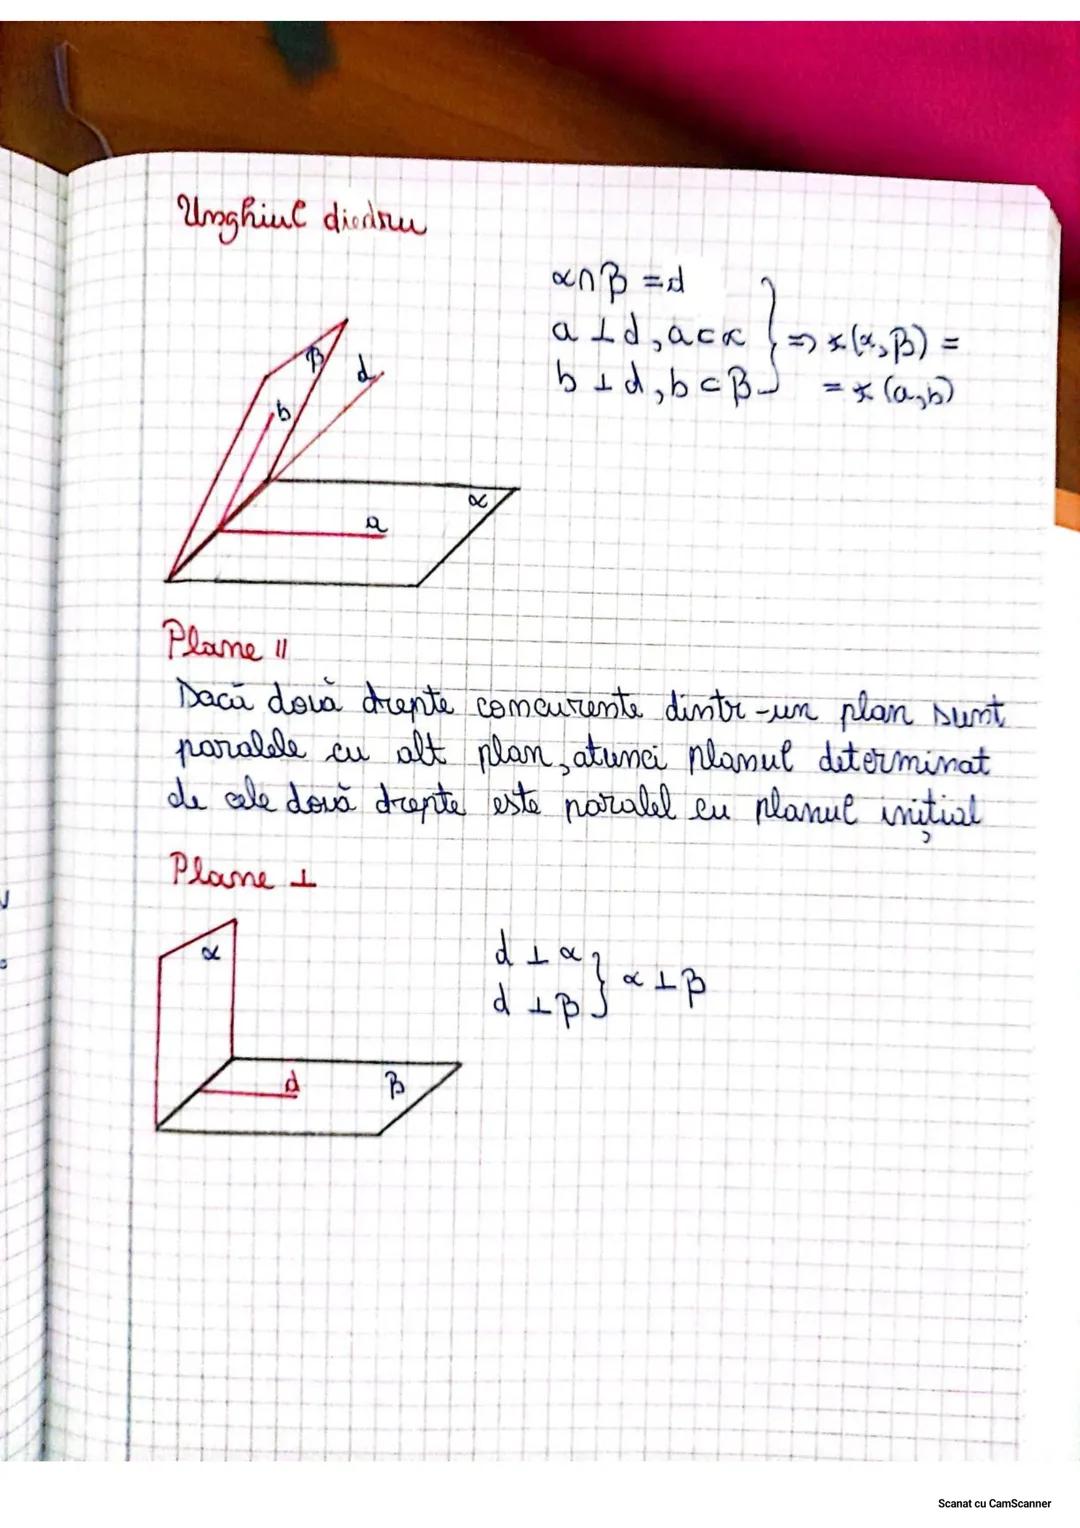 Unghiul diedru
α∩β = d
a ⊥ d, a ⊂ α } => ∢(α, β) =
b ⊥ d, b ⊂ β = ∢(a, b)
β
d
b
α
a
Plane ||
Dacă două drepte concurente dintr-un plan sunt
paralele cu alt plan, atunci planul determinat
de cele două drepte este paralel cu planul inițial
Plane ⊥
α
d ⊥ α
d ⊥ β } α ⊥ β
d
β
Scanat cu CamScanner